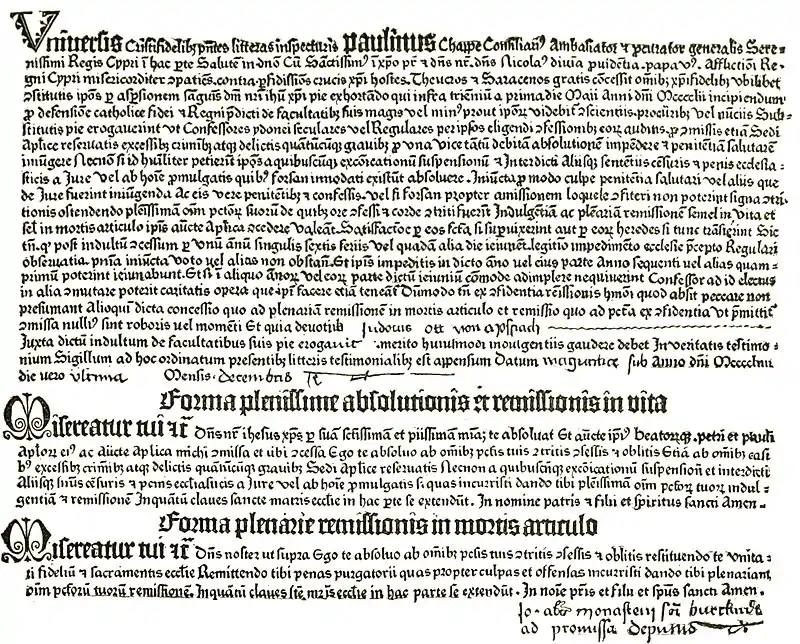 Vniuersis Cristifidelibꝫ pn̄tes litteras inspecturis paulinus Chappe Consiliari⁹ Ambasiator ⁊ ꝓcurator generalis Sere-
nissimi Regis Cypri ī hac ꝑte Salutē in dn̄o Cū Sāctissim⁹ ī xp̄o pr̄ ⁊ dn̄s nr̄. dn̄s Nicola⁹ diuīa ꝓuidentia. papa v⁹. Afflictiōi Re-
gni Cypri misericorditer ꝯpatiēs. contra ꝑfidissimos crucis xp̄i hostes. Theucros ⁊ Saracenos gratis concessit om̄ibꝫ xp̄ifidelibꝫ vbilibet
ꝯstitutis ipōs ꝑ aspersionem sāguīs dn̄i nr̄i ihū xp̄i pie exhortādo qui infra trienniū a prima die Maii Anni dn̄i Mcccclii incipiendum
ꝓ defensiōe catholice fidei ⁊ Regni p̄dicti de facultatibꝫ suis magis vel min⁹ prout ipōꝝ videbit̄ ꝯscientiis ꝓcuratoribꝫ vel nūciis Sub-
stitutis pie erogauerint vt Confessores ydonei seculares vel Regulares ꝑ ipsos eligendi ꝯfessionibꝫ eoꝝ auditis. ꝓ ꝯmissis etiā Sedi
Aplice reseruatis excessibꝫ criminibꝫ atqꝫ delictis quātūcūqꝫ grauibꝫ ꝓ vna vice tātū debitā absolutionē impēdere ⁊ penitētiā salutarē
iniūgere Necnō si id humiliter petierūt ipōs a quibuscūqꝫ excōicationū suspensionū ⁊ Interdicti Aliisqꝫ sentētiis cēsuris ⁊ penis ecclesia-
sticis a Jure vel ab hoīe ꝓmulgatis quibꝫ forsan innodati existūt absoluere. Iniūcta ꝓ modo culpe penitētia salutari vel aliis que
de Jure fuerint iniūgenda Ac eis vere penitētibꝫ ⁊ confessis. vel si forsan propter amissionem loquele ꝯfiteri non poterint signa ꝯtri-
tionis ostendendo pleīssimā oīm pctōꝝ suoꝝ de quibꝫ ore ꝯfessi ⁊ corde ꝯtriti fuerīt Indulgētiā ac plenariā remissionē semel in vita et
sel̄ in mortis articulo ip̄is auc̄te Aplica ꝯcedere valeāt. Satisfactiōe ꝑ eos fc̄ta si suꝑuixerint aut ꝑ eoꝝ heredes si tunc trāsierint Sic
tn̄. qꝫ post indultū ꝯcessum ꝑ vnū ānū singulis sextis feriis vel quadā alia die ieiunēt. legitīo impedimēto ecclesie p̄cepto Regulari
obseruātia. pn̄ia iniūcta voto vel alias non obstāt̄. Et ip̄is impeditis in dicto āno vel eius parte Anno sequenti vel alias quam-
primū poterint ieiunabūt. Et si ī aliquo ānoꝝ vel eoꝝ parte dictū ieiuniū cōmode adimplere nequiuerint Confessor ad id electus
in alia ꝯmutare poterit caritatis opera que ip̄i facere etiā teneāt̄ Dūmodo tn̄ ex ꝯfidentia remissionis hmōi quod absit peccare non
presumant Alioqui dicta concessio quo ad plenariā remissionē in mortis articulo et remissio quo ad pctā ex ꝯfidētia vt p̄mittit̄
ꝯmissa nulli⁹ sint roboris vel momēti Et quia deuoti Judouis Ott von apspach
Juxta dictū indultum de facultatibus suis pie erogauit .merito huiusmodi indulgentiis gaudere debet In veritatis testimo-
nium Sigillum ad hoc ordinatum presentibꝫ litteris testimonialibꝫ est appensum Datum maguntie sub Anno dn̄i Mccccliiii
die vero vltima Mensis decembris
Forma plenissime absolutionis et remissionis in vita
Misereatur tui ⁊c̄ Dn̄s nr̄ ihesus xp̄s ꝑ suā sc̄tissimā et piissimā miām te absoluat Et auc̄te ip̄i⁹ beatoꝝqꝫ petri et pauli
Apl̄oꝝ ei⁹ ac auc̄te Aplica michi ꝯmissa et tibi ꝯcessa Ego te absoluo ab om̄ibꝫ pctīs tuis ꝯtritis ꝯfessis ⁊ oblitis Etiā ab om̄ibꝫ casi
bꝫ excessibꝫ criminibꝫ atqꝫ delictis quātūcūqꝫ grauibꝫ Sedi Aplice reseruatis Necnon a quibuscūqꝫ excōicationū suspensionū et interdicti
Aliisqꝫ sn̄iis cēsuris ⁊ penis ecclesiasticis a Jure vel ab hoīe ꝓmulgatis si quas incurristi dando tibi plenissimā oīm pctōꝝ tuoꝝ indul-
gentiā ⁊ remissionē Inquātū claues sancte matris ecclīe in hac ꝑte se extendūt. In nomine patris ⁊ filii et spiritus sancti Amen.
Forma plenarie remissionis in mortis articulo
Misereatur tui ⁊c̄ Dn̄s noster ut supra Ego te absoluo ab om̄ibꝫ pctīs tuis ꝯtritis ꝯfessis ⁊ oblitis restituendo te vnita-
ti fidelium ⁊ sacramentis ecclīe Remittendo tibi penas purgatorii quas propter culpas et offensas incurristi dando tibi plenariam
oīm pctōrū tuorū remissionē. Inquātū claues sc̄te mr̄is ecclīe in hac parte se extendūt. In noīe pr̄is et filii et spūs sancti Amen.
Jo. abbas monasterii sancti burckardi
ad premissa deputatus